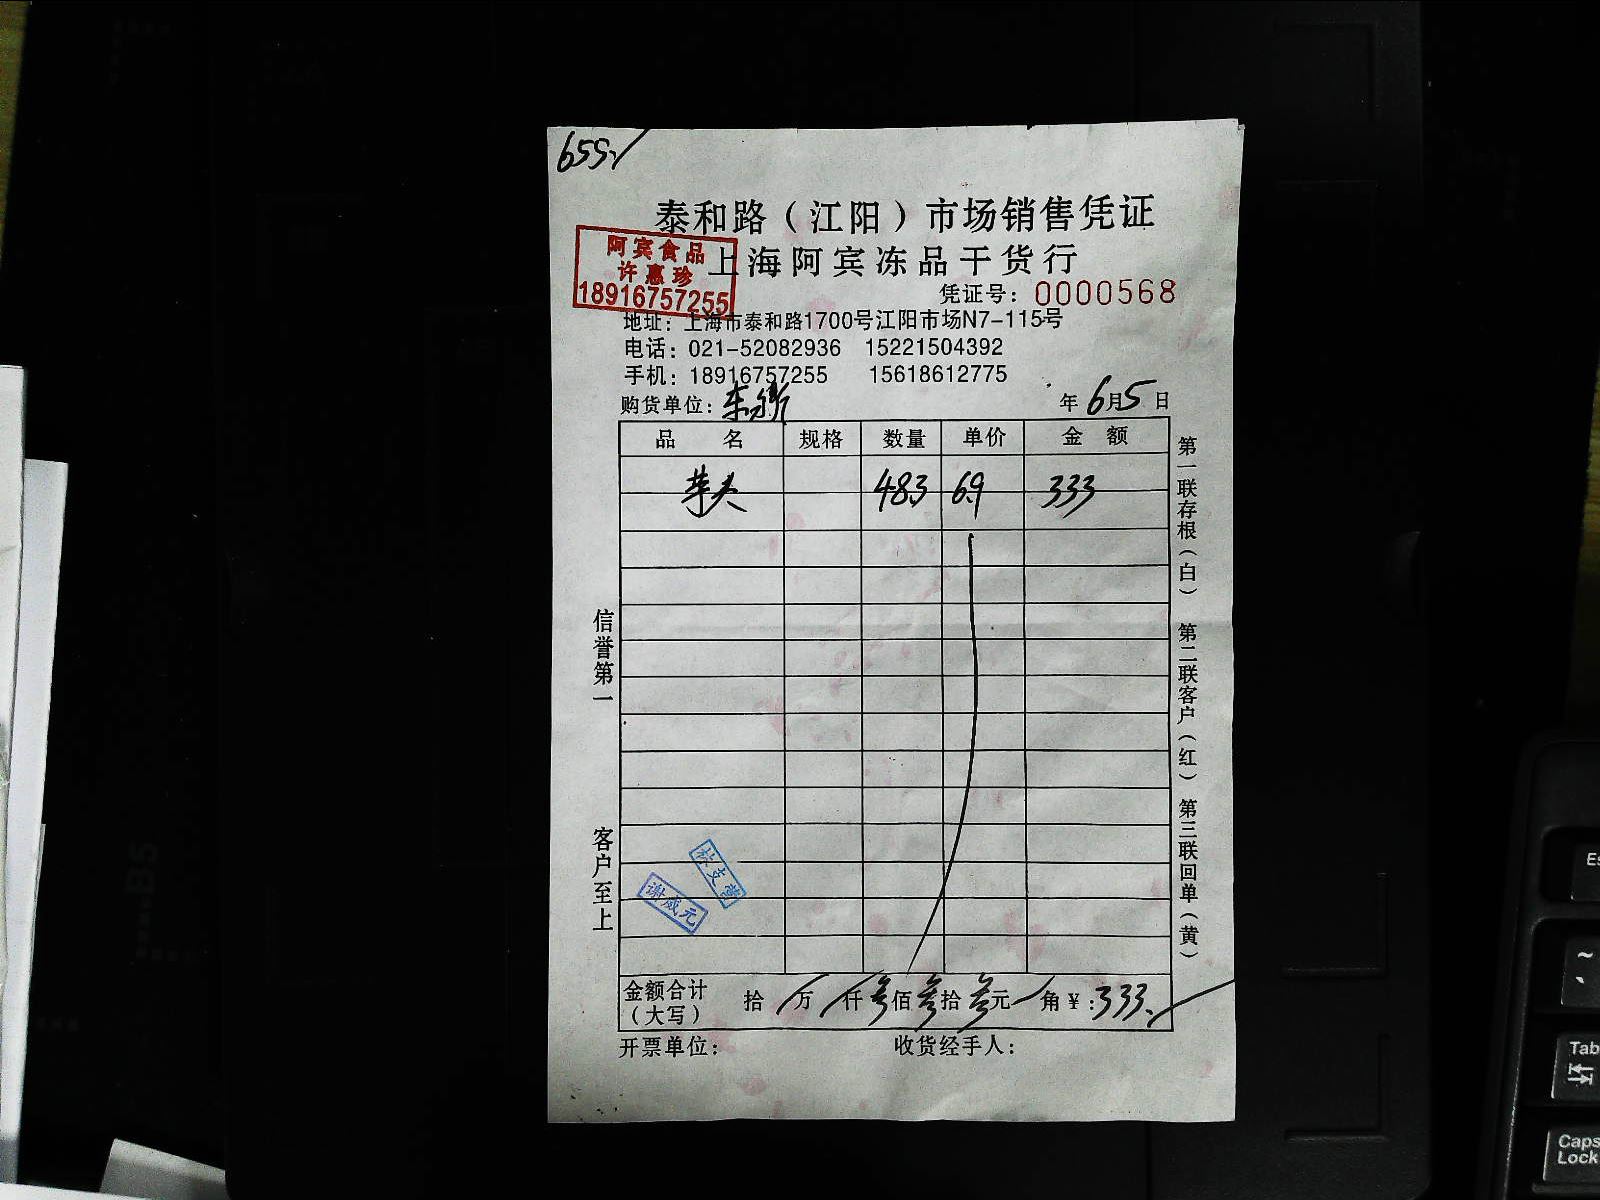 655
泰和路（江阳）市场销售凭证
上海阿宾冻品干货行
阿宾食品
许惠珍
18916757255
凭证号：0000568
地址：上海市泰和路1700号江阳市场N7-115号
电话：021-52082936 15221504392
手机：18916757255 15618612775
购货单位： 年6月5日
品名 规格 数量 单价 金额
芋头 48.3 6.9 333
信誉第一
客户至上
第一联存根（白） 第二联客户（红） 第三联回单（黄）
谢咸元
金额合计（大写） 拾 万 仟叁佰叁拾叁元 角￥：333.
开票单位： 收货经手人：
B5
Es
~
Tab
Caps
Lock